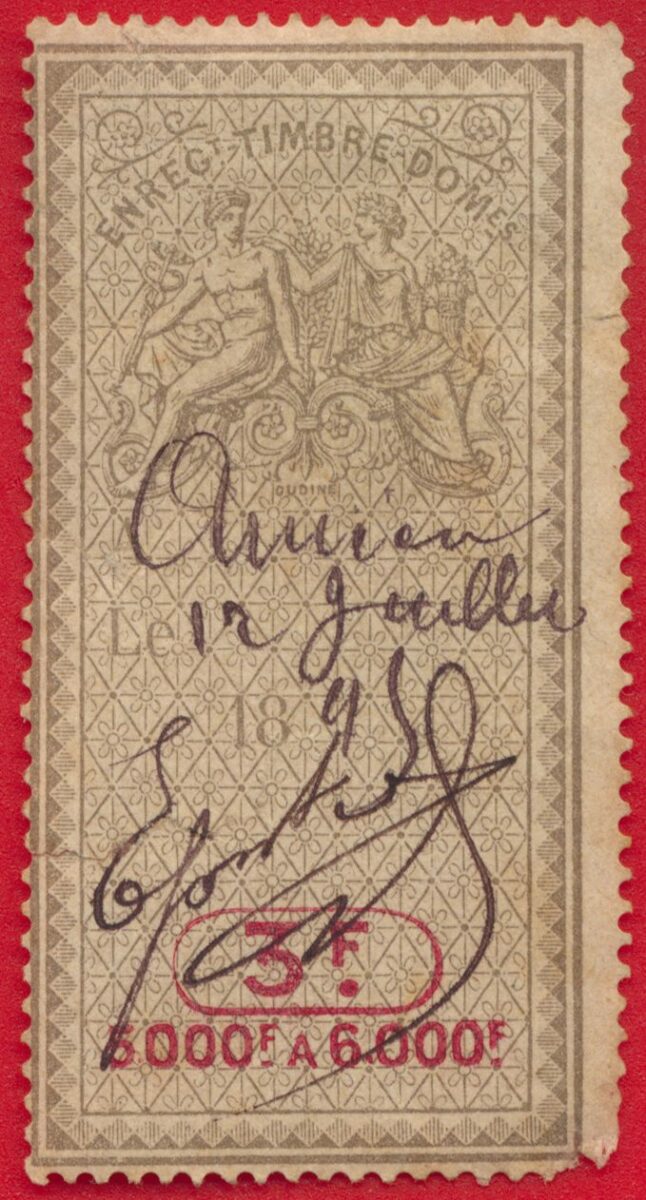 ENREGT. TIMBRE. DOMES
OUDINÉ F
Amien
Le 12 Juillet
1895
3F.
5.000F. A 6.000F.